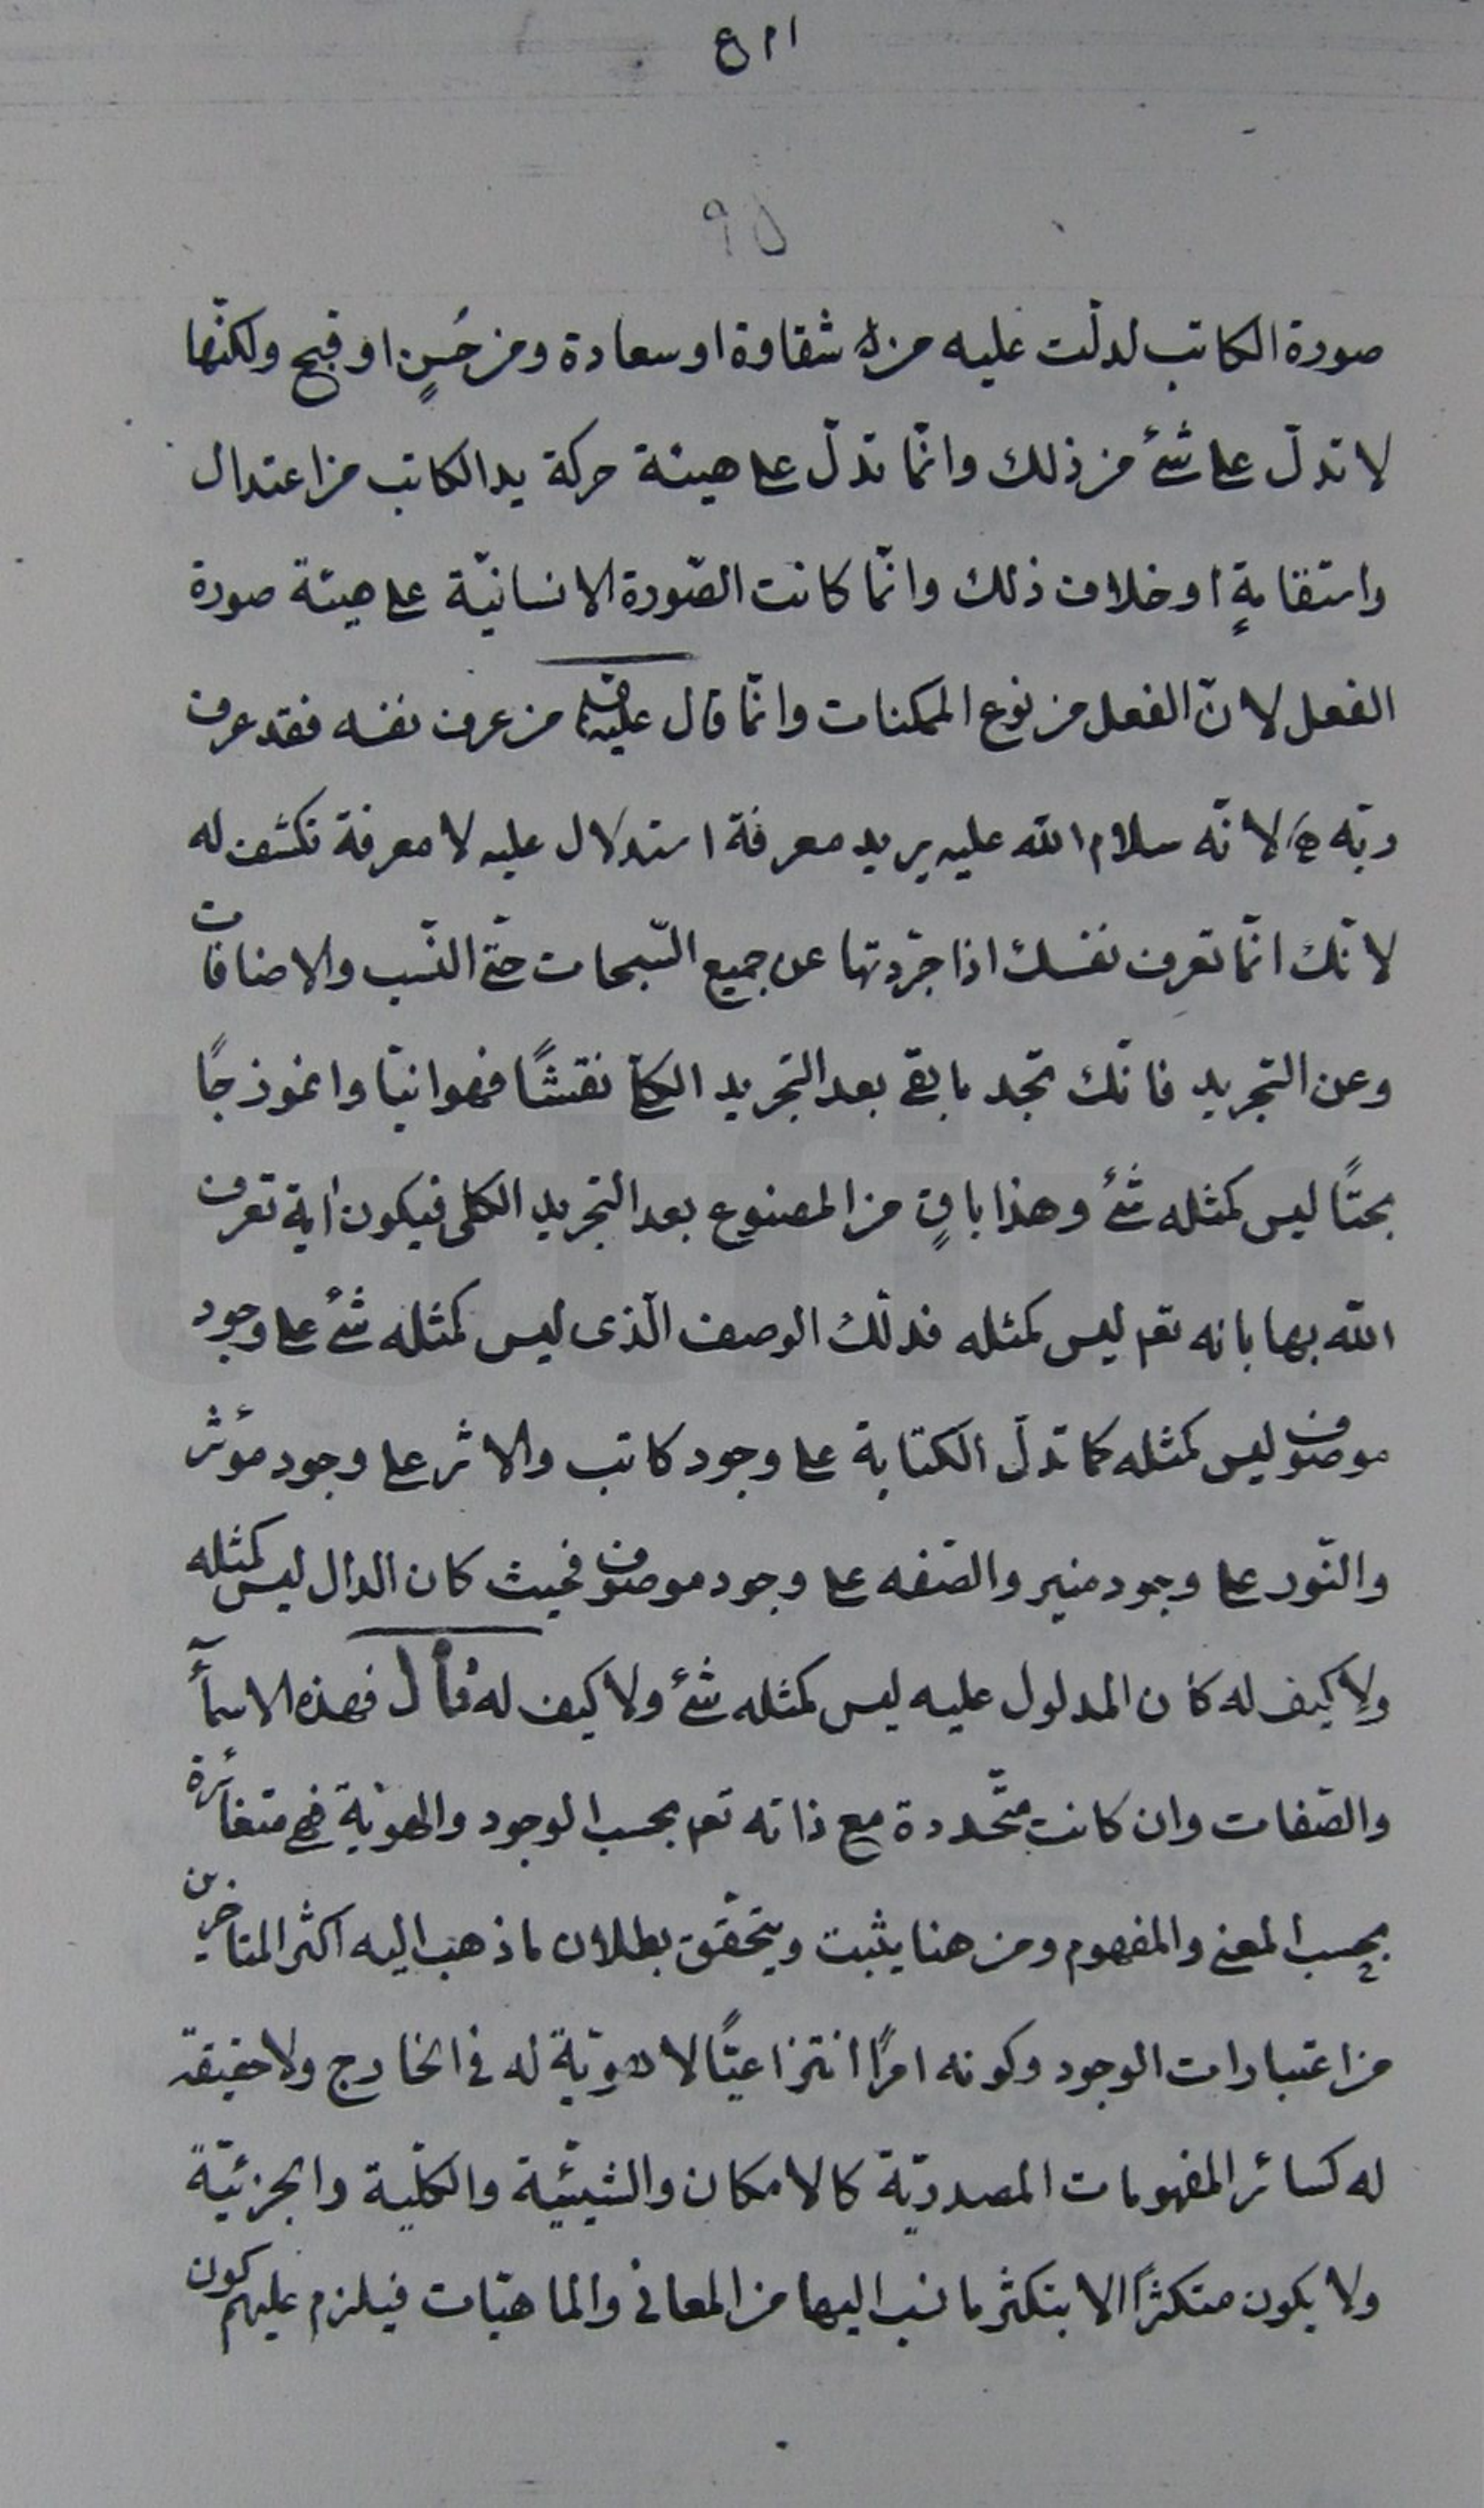 صورة الكاتب لدلّت عليه من شقاوة او سعادة ومن حُسنٍ او قبح ولكنّها
لا تدلّ على شئ من ذلك وانّما تدلّ على هيئة حركة يد الكاتب من اعتدال
واستقامةٍ او خلاف ذلك وانّما كانت الصّورة الانسانيّة على هيئة صورة
الفعل لانّ الفعل من نوع الممكنات وانّما قال من عرف نفسه فقد عرف
ربّه لانّه سلام الله عليه يريد معرفة استدلال عليه لا معرفة تكشف له
لانّك انّما تعرف نفسك اذا جرّدتها عن جميع السّبحات حتّى النّسب والاضافات
وعن التجريد فانّك تجد ما بقى بعد التجريد الكلّى نقشًا فهوانيّا وانموذجًا
بحتًا ليس كمثله شئ وهذا باقٍ من المصنوع بعد التجريد الكلى فيكون اية تعرف
الله بها بانه تعم ليس كمثله فدلّك الوصف الّذى ليس كمثله شئ على وجود
موصوف ليس كمثله كما تدلّ الكتابة على وجود كاتب والاثر على وجود مؤثر
والنّور على وجود منير والصّفه على وجود موصوف فحيث كان الدال ليس كمثله
ولا كيف له كان المدلول عليه ليس كمثله شئ ولا كيف له قال فهذه الاسمآء
والصّفات وان كانت متّحددة مع ذاته تعم بحسب الوجود والهويّة فهى متغائرة
بحسب المعنى والمفهوم ومن هنا يثبت ويتحقّق بطلان ما ذهب اليه اكثر المتاخرين
من اعتبارات الوجود وكونه امرًا انتزاعيًّا لا هويّة له فى الخارج ولا حقيقة
له كسائر المفهومات المصدريّة كالامكان والشيئيّة والكلّية والجزئيّة
ولا يكون متكثرًا الا بتكثر ما نسب اليها من المعانى والماهيّات فيلزم عليهم كون